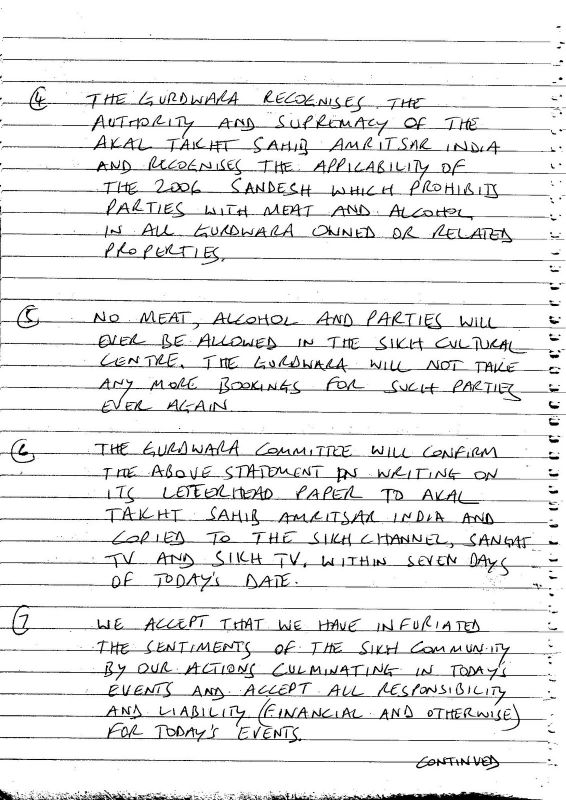 ④ THE GURDWARA RECOGNISES THE
AUTHORITY AND SUPREMACY OF THE
AKAL TAKHT SAHIB AMRITSAR INDIA
AND RECOGNISES THE APPLICABILITY OF
THE 2006 SANDESH WHICH PROHIBITS
PARTIES WITH MEAT AND ALCOHOL
IN ALL GURDWARA OWNED OR RELATED
PROPERTIES.
⑤ NO MEAT, ALCOHOL AND PARTIES WILL
EVER BE ALLOWED IN THE SIKH CULTURAL
CENTRE. THE GURDWARA WILL NOT TAKE
ANY MORE BOOKINGS FOR SUCH PARTIES
EVER AGAIN
⑥ THE GURDWARA COMMITTEE WILL CONFIRM
THE ABOVE STATEMENT IN WRITING ON
ITS LETTERHEAD PAPER TO AKAL
TAKHT SAHIB AMRITSAR INDIA AND
COPIED TO THE SIKH CHANNEL, SANGAT
TV AND SIKH TV. WITHIN SEVEN DAYS
OF TODAY'S DATE.
⑦ WE ACCEPT THAT WE HAVE INFURIATED
THE SENTIMENTS OF THE SIKH COMMUNITY
BY OUR ACTIONS CULMINATING IN TODAY'S
EVENTS AND ACCEPT ALL RESPONSIBILITY
AND LIABILITY (FINANCIAL AND OTHERWISE)
FOR TODAY'S EVENTS.
CONTINUED